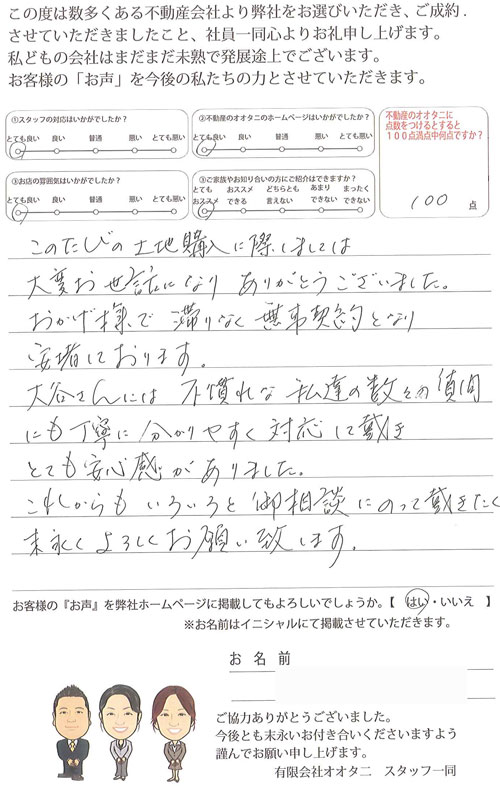 この度は数多くある不動産会社より弊社をお選びいただき、ご成約.
させていただきましたこと、社員一同心よりお礼申し上げます。
私どもの会社はまだまだ未熟で発展途上でございます。
お客様の「お声」を今後の私たちの力とさせていただきます。
①スタッフの対応はいかがでしたか?
とても良い 良い 普通 悪い とても悪い
②不動産のオオタニのホームページはいかがでしたか?
とても良い 良い 普通 悪い とても悪い
③お店の雰囲気はいかがでしたか?
とても良い 良い 普通 悪い とても悪い
③ご家族やお知り合いの方にご紹介はできますか?
とても オススメ どちらとも あまり まったく
おススメ できる 言えない できない できない
不動産のオオタニに
点数をつけるとすると
100点満点中何点ですか?
100 点
このたびの土地購入に際しましては
大変お世話になり ありがとうございました。
おかげ様で 滞りなく 無事契約となり
安堵しております。
大谷さんには 不慣れな 私達の数々の質問
にも丁寧に 分かりやすく 対応して戴き
とても 安心感が ありました。
これからも いろいろと 御相談にのって戴きたく
末永く よろしく お願い致します。
お客様の『お声』を弊社ホームページに掲載してもよろしいでしょうか。【 はい・いいえ 】
※お名前はイニシャルにて掲載させていただきます。
お 名 前
ご協力ありがとうございました。
今後とも末永いお付き合いくださいますよう
謹んでお願い申し上げます。
有限会社オオタニ スタッフ一同